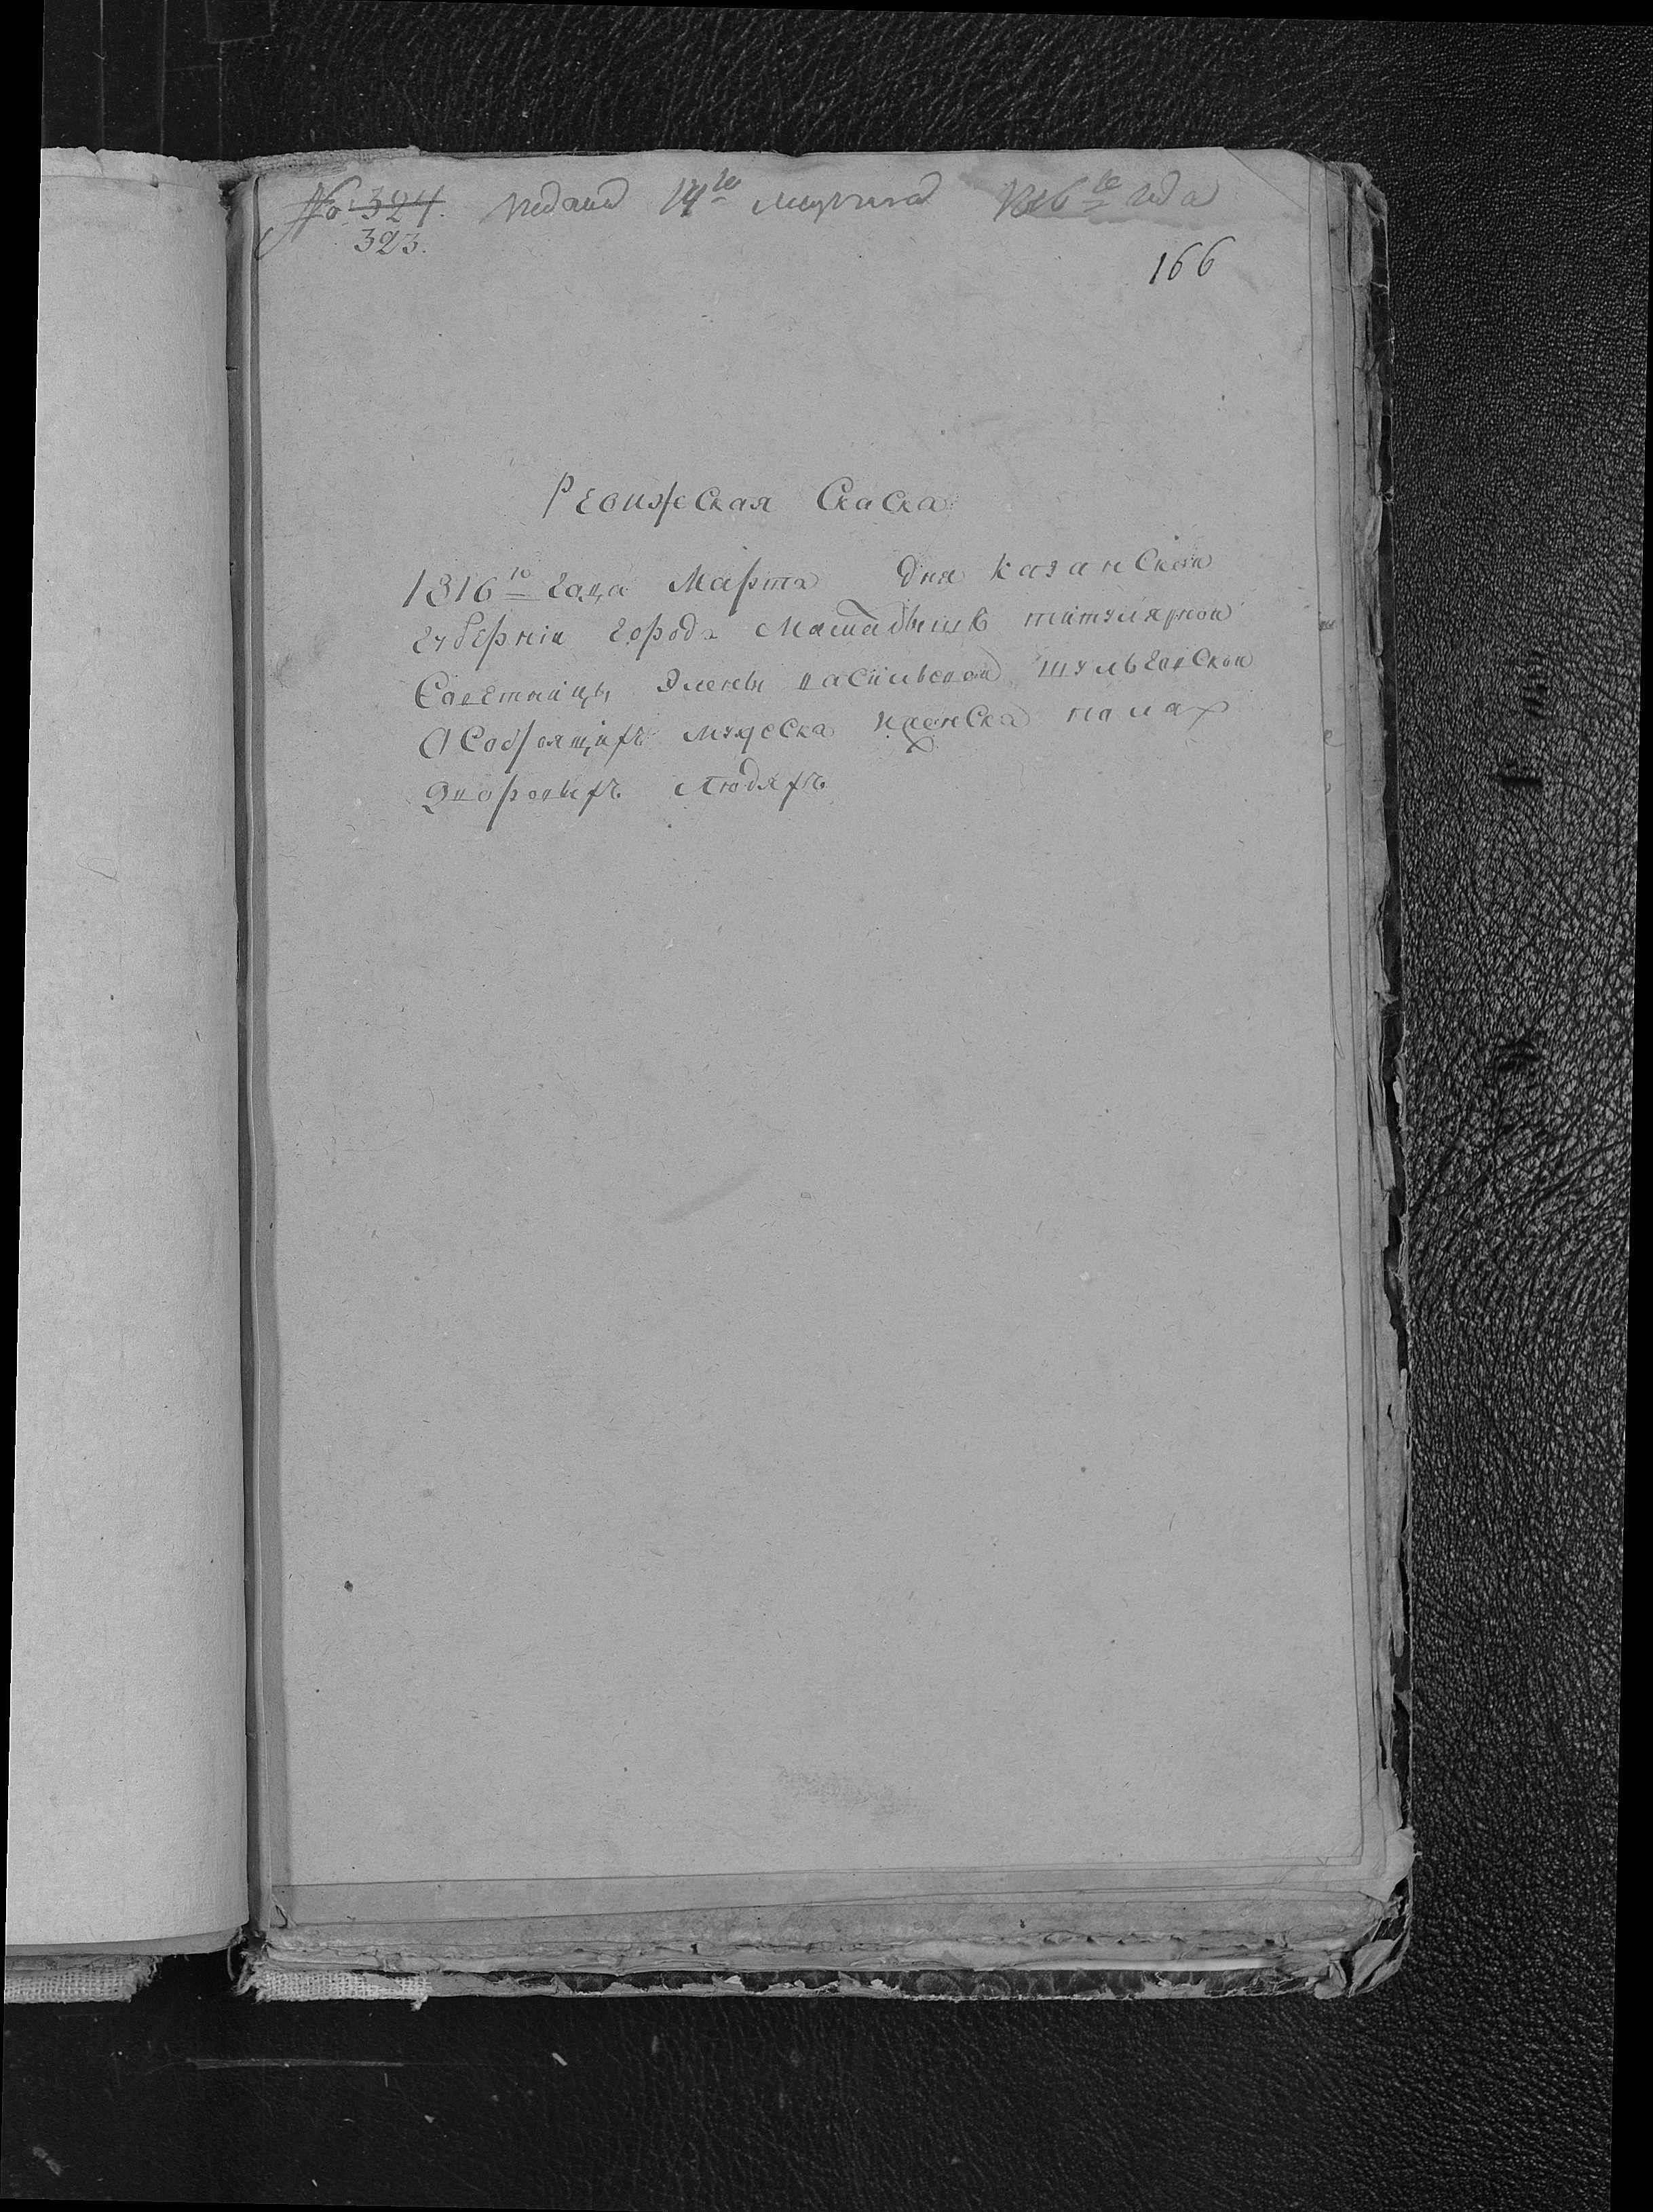 № 324. подана 14го марта 1816го года
323.
166
Ревижеская Скаска
1816го Года Марта дня казанской
Губерніи Города Мамадышъ титулярной
Советницы Элены васильевой шульговской
О Состоящихъ мужеска иженска пола х
Дворовыхъ Людяхъ